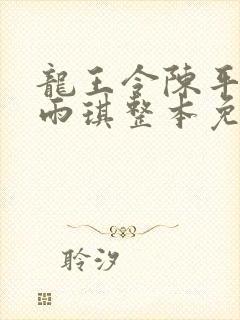 龍王令陳平
雨琪整本免
聆汐